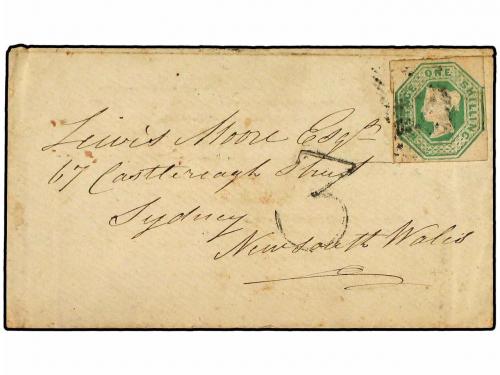 ONE SHILLING
Lewis Moore Esqr
67 Castlereagh Street
3
Sydney
New South Wales